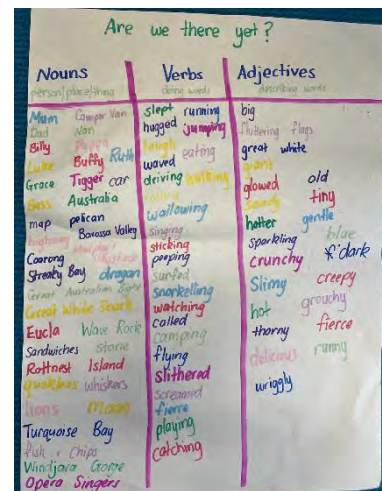 Are we there yet?
Nouns Verbs Adjectives
person/place/thing doing words describing words
Mum Camper Van
Dad Van
Billy Poppa
Luke Buffy Ruth
Grace Tigger car
Bess Australia
map pelican
highway Barossa Valley
Coorong
Streaky Bay dragon
Great Australian Bight
Great White Shark
Eucla Wave Rock
Sandwiches stone
Rottnest Island
quokkas whiskers
lions Moon
Turquoise Bay
fish & chips
Windjara Gorge
Opera Singers
slept running
hugged jumping
laugh
waved eating
driving walking
wallowing
singing
sticking
peeping
surfed
snorkelling
watching
called
camping
flying
slithered
screamed
fierce
playing
catching
big
fluttering flags
great white
giant
glowed old
sandy tiny
hotter gentle
sparkling blue
crunchy dark
Slimy creepy
hot grouchy
thorny fierce
delicious runny
wriggly